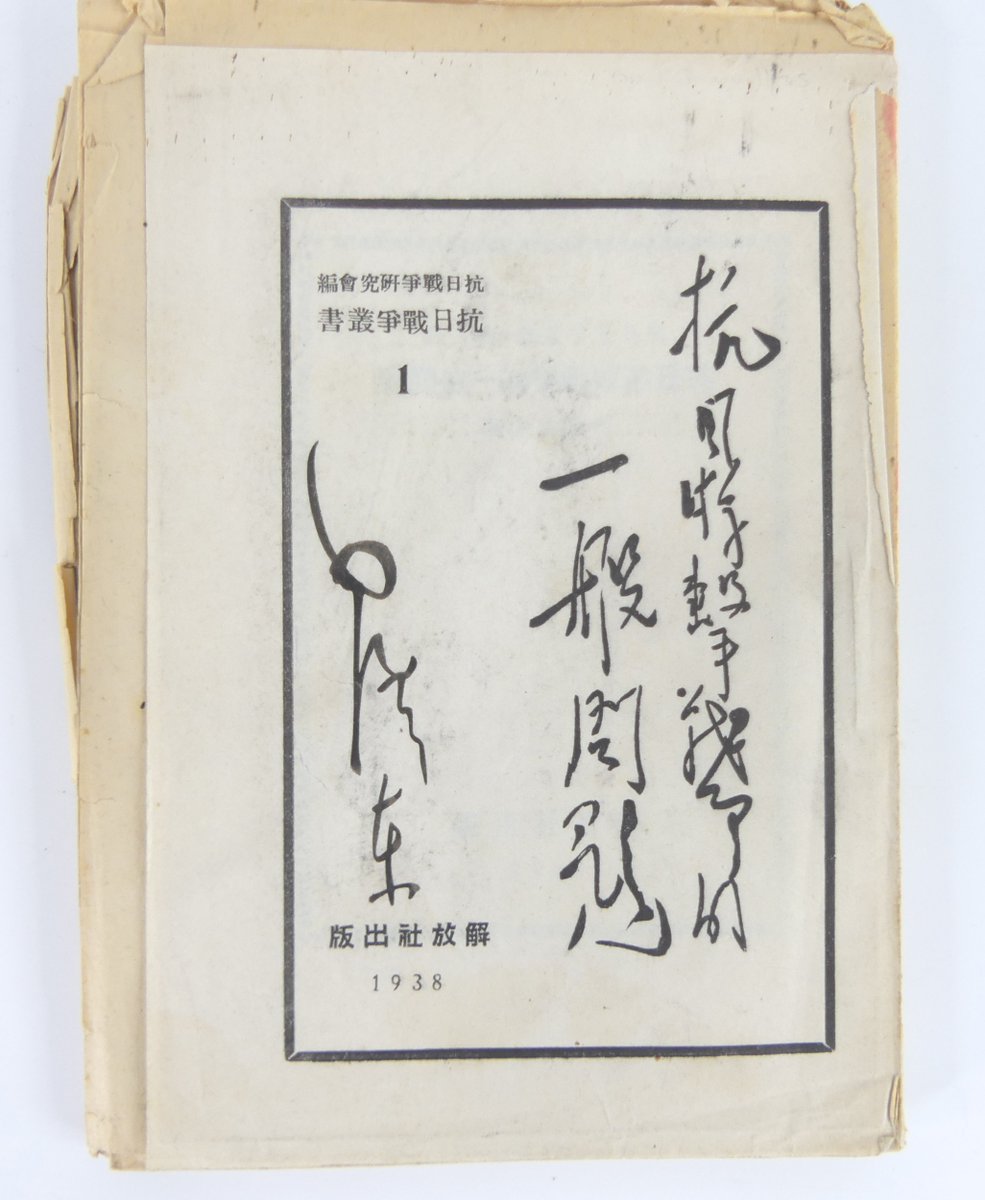 抗日游擊戰爭的
一般問題
抗日戰爭硏究會編
抗日戰爭叢書
1
毛澤东
解放社出版
1938